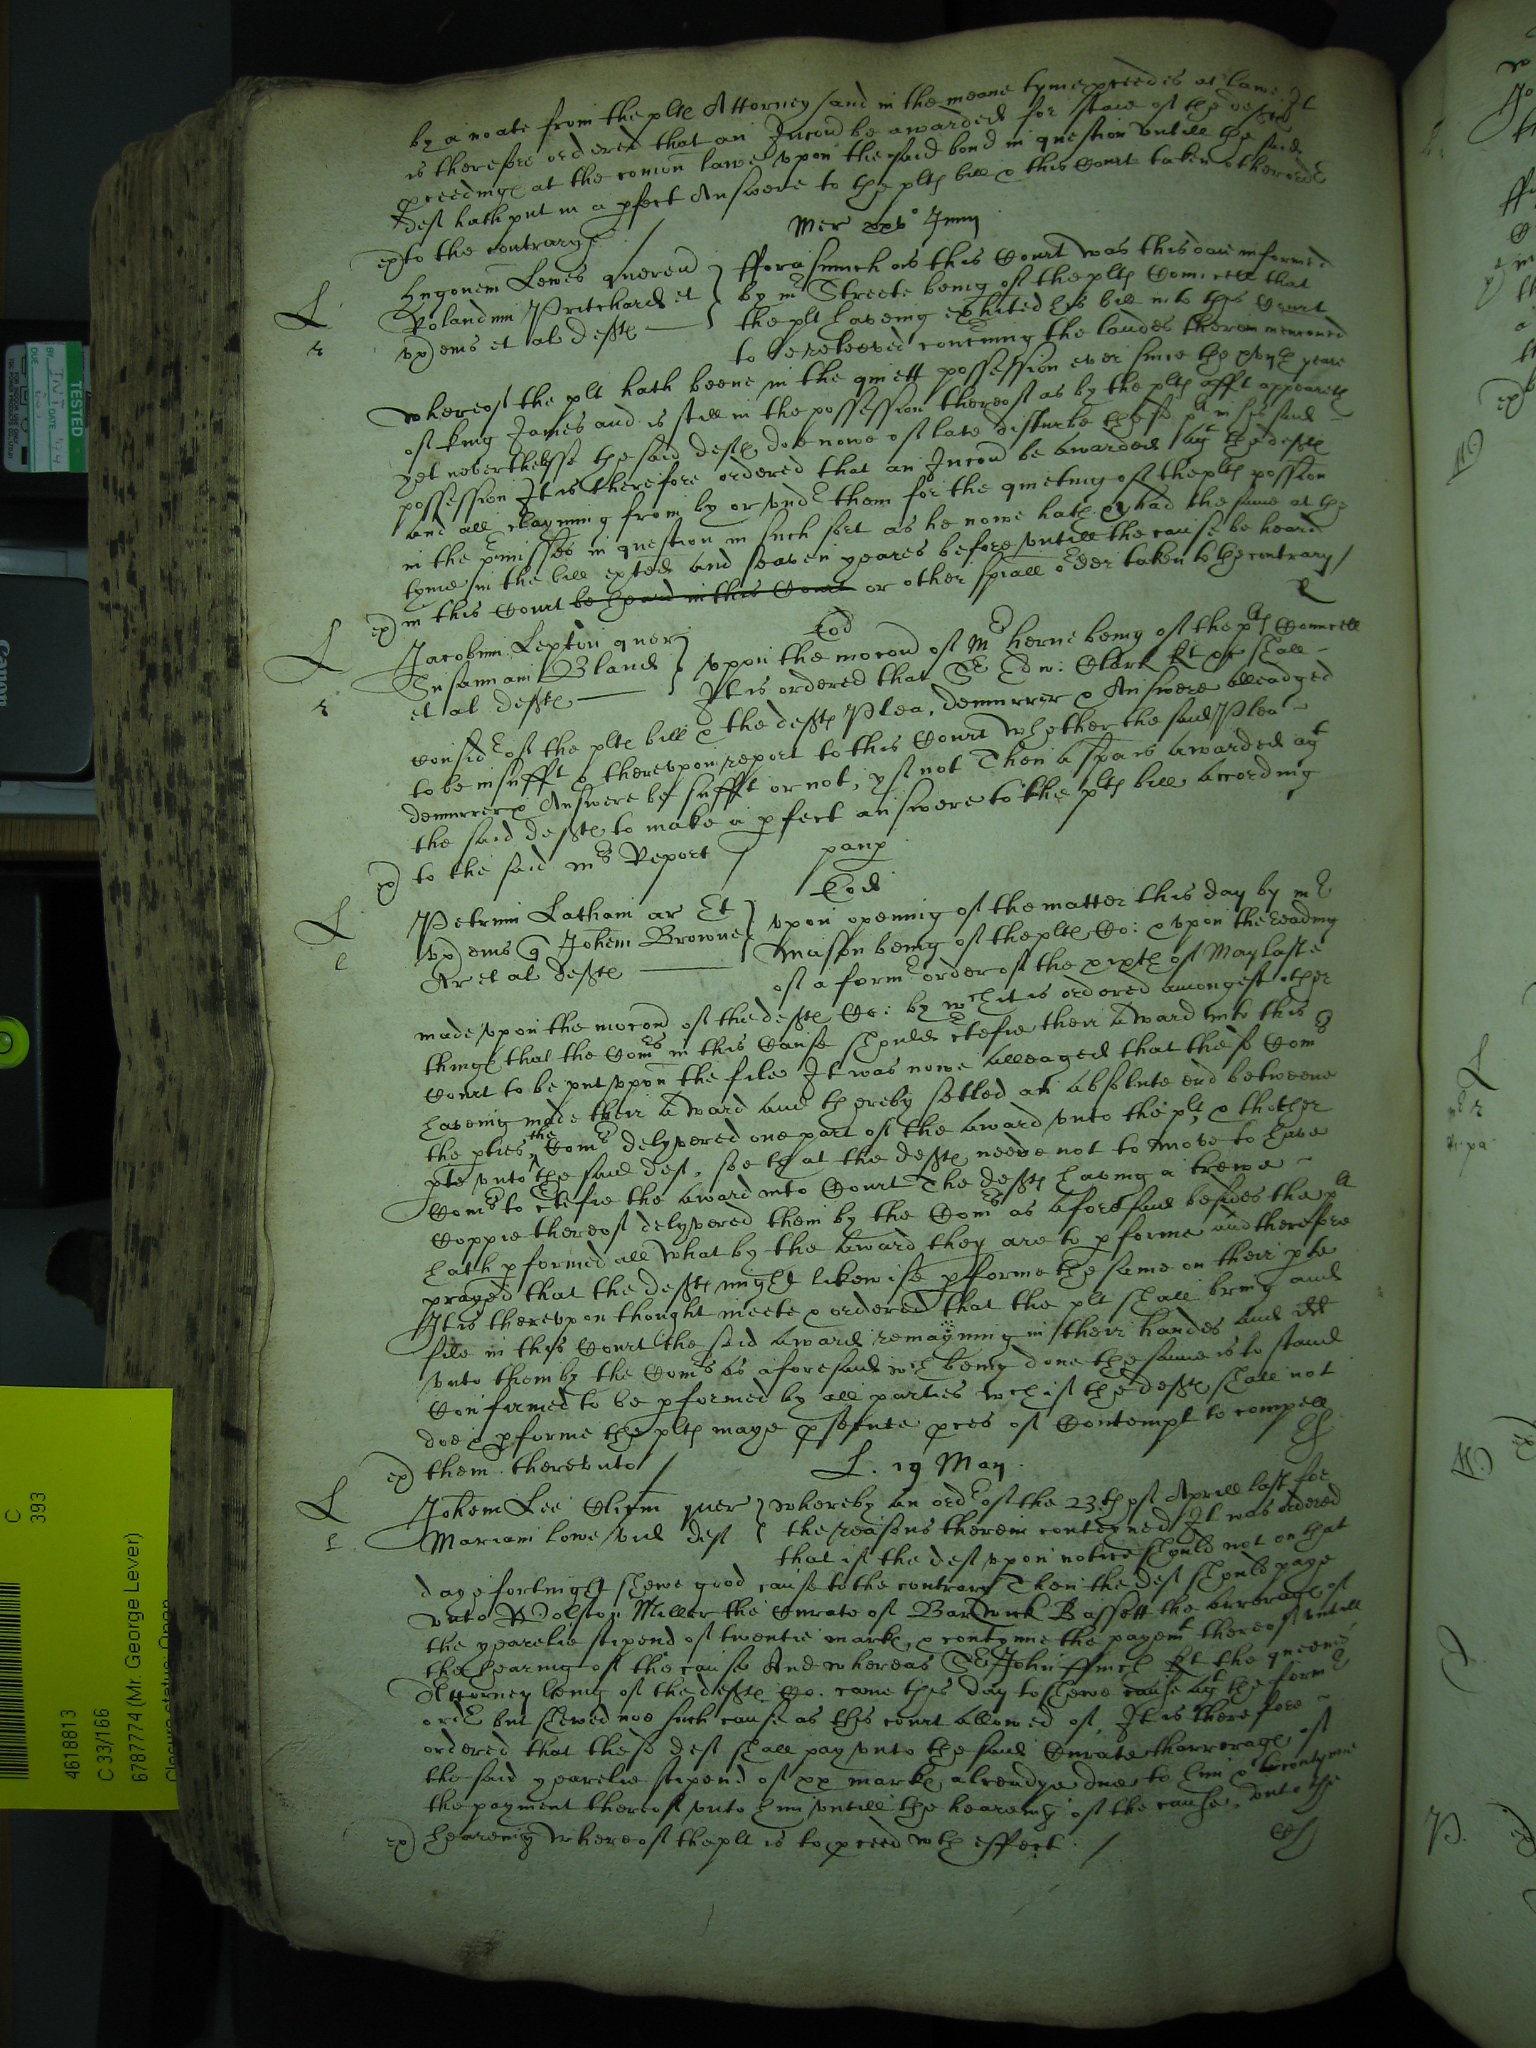 by a noate from the plts Attorney and in the meane tyme pceedes at lawe It
is therefore ordered that an Iniuncon be awarded for staie of the defts
pceedings at the comon lawe vpon the said bond in question vntill the said
deft hath put in a pfect Answere to the plts bill & this Court taken other order
ex to the contrarye /
Mer xxv° Junij
Hugonem Lewes queren
Rolandum Pritchard et
vx eius et al defts
fforasmuch as this Court was this daie informed
by mr Streete being of the plts Councell that
the plt haveing exhited his bill into this Court
to be releeved concerning the landes therein menconed
whereof the plt hath beene in the quiett possession ever since the yeare
of king James and is still in the possession thereof as by the plts afft appeareth
yet neverthelesse the said defts doe nowe of late disturbe the plt in his said
possession It is therefore ordered that an Iniuncon be awarded agt the defts
and all clayming from by or vnder them for the quieting of the plts possion
in the pmisses in question in such sort as he nowe hath & had the same at the
tyme of the bill exhited and seaven yeares before vntill the cause be heard
ex in this Court be heard in this Court or other spiall order taken to the contrary /
Jacobum Lepton quer
Susannam Bland
et al defts
Eod
vpon the mocon of Mr herne being of the plts Councell
It is ordered that Sr Edw: Clark kt shall
consider of the plts bill & the defts Plea, demurrer & Answere alleadged
to be insufft & therevpon report to this Court whether the said Plea
demurrer & Answere be sufft or not, yf not Then a spa is awarded agt
the said defts to make a pfect answere to the plts bill according
ex to the said mrs Report /
Eod
Petrum Latham ar Et
vx eius q Johem Browne
Ar et al defts
vpon opening of the matter this day by mr
Mason being of the plts Co: & vpon the reading
of a former order of the sixth of May last
made vpon the mocon of the defts Co: by wch it is ordered amongest other
things that the Comrs in this Cause should ctefie their Award into this
Court to be put vpon the file It was nowe alleaged that these Comrs
haveing made their award and thereby setled an absolute end betweene
the pties the Comrs delyvered one part of the award vnto the plt & thother
pte vnto the said deft, soe that the defts neede not to move to have
Comrs to ctefie the award into Court The defts having a trewe
Coppie thereof delyvered them by the Comrs as aforesaid besides the plt
hath pformed all what by the Award they are to pforme and therefore
prayed that the defts might likewise pforme the same on their pte
It is therevpon thought meete & ordered that the plt shall bring and
file in this Court the said award remayning in their handes and dd
vnto them by the Comrs as aforesaid wch being done the same is to stand
Confirmed to be pformed by all parties wch if the defts shall not
doe & pforme the plts maye psecute pces of Contempt to compell
ex them therevnto /
L. 19 May
Johem Lee Clicum quer
Mariam Lowe vid deft
whereby an order of the 23th of Aprill last for
the reasons therein conteyned It was ordered
that if the deft vpon notice should not on that
daye fortnight shewe good cause to the contrary Then the deft should paye
vnto Wolston Miller the Curate of Barwick Bassett the arrerages of
the yearelie stipend of twentie marks, & contynue the payemt thereof vntill
the hearing of the cause And whereas Sr John ffinch kt the queenes
Attorney being of the defts Co. came this day to shewe cause agt the former
order but shewed noe such cause as this court allowed of, It is therefore
ordered that these deft shall pay vnto the said Curate tharrerages of
the said yearelie stipend of xx marks alreadye due to him & to contynue
the payment thereof vnto him vntill the heareing of the cause, vnto the
ex heareing whereof the plt is to pceed wth effect /
TESTED
DUE
Canon
C
393
4618813
C 33/166
6787774 (Mr. George Lever)
Closure status: Open